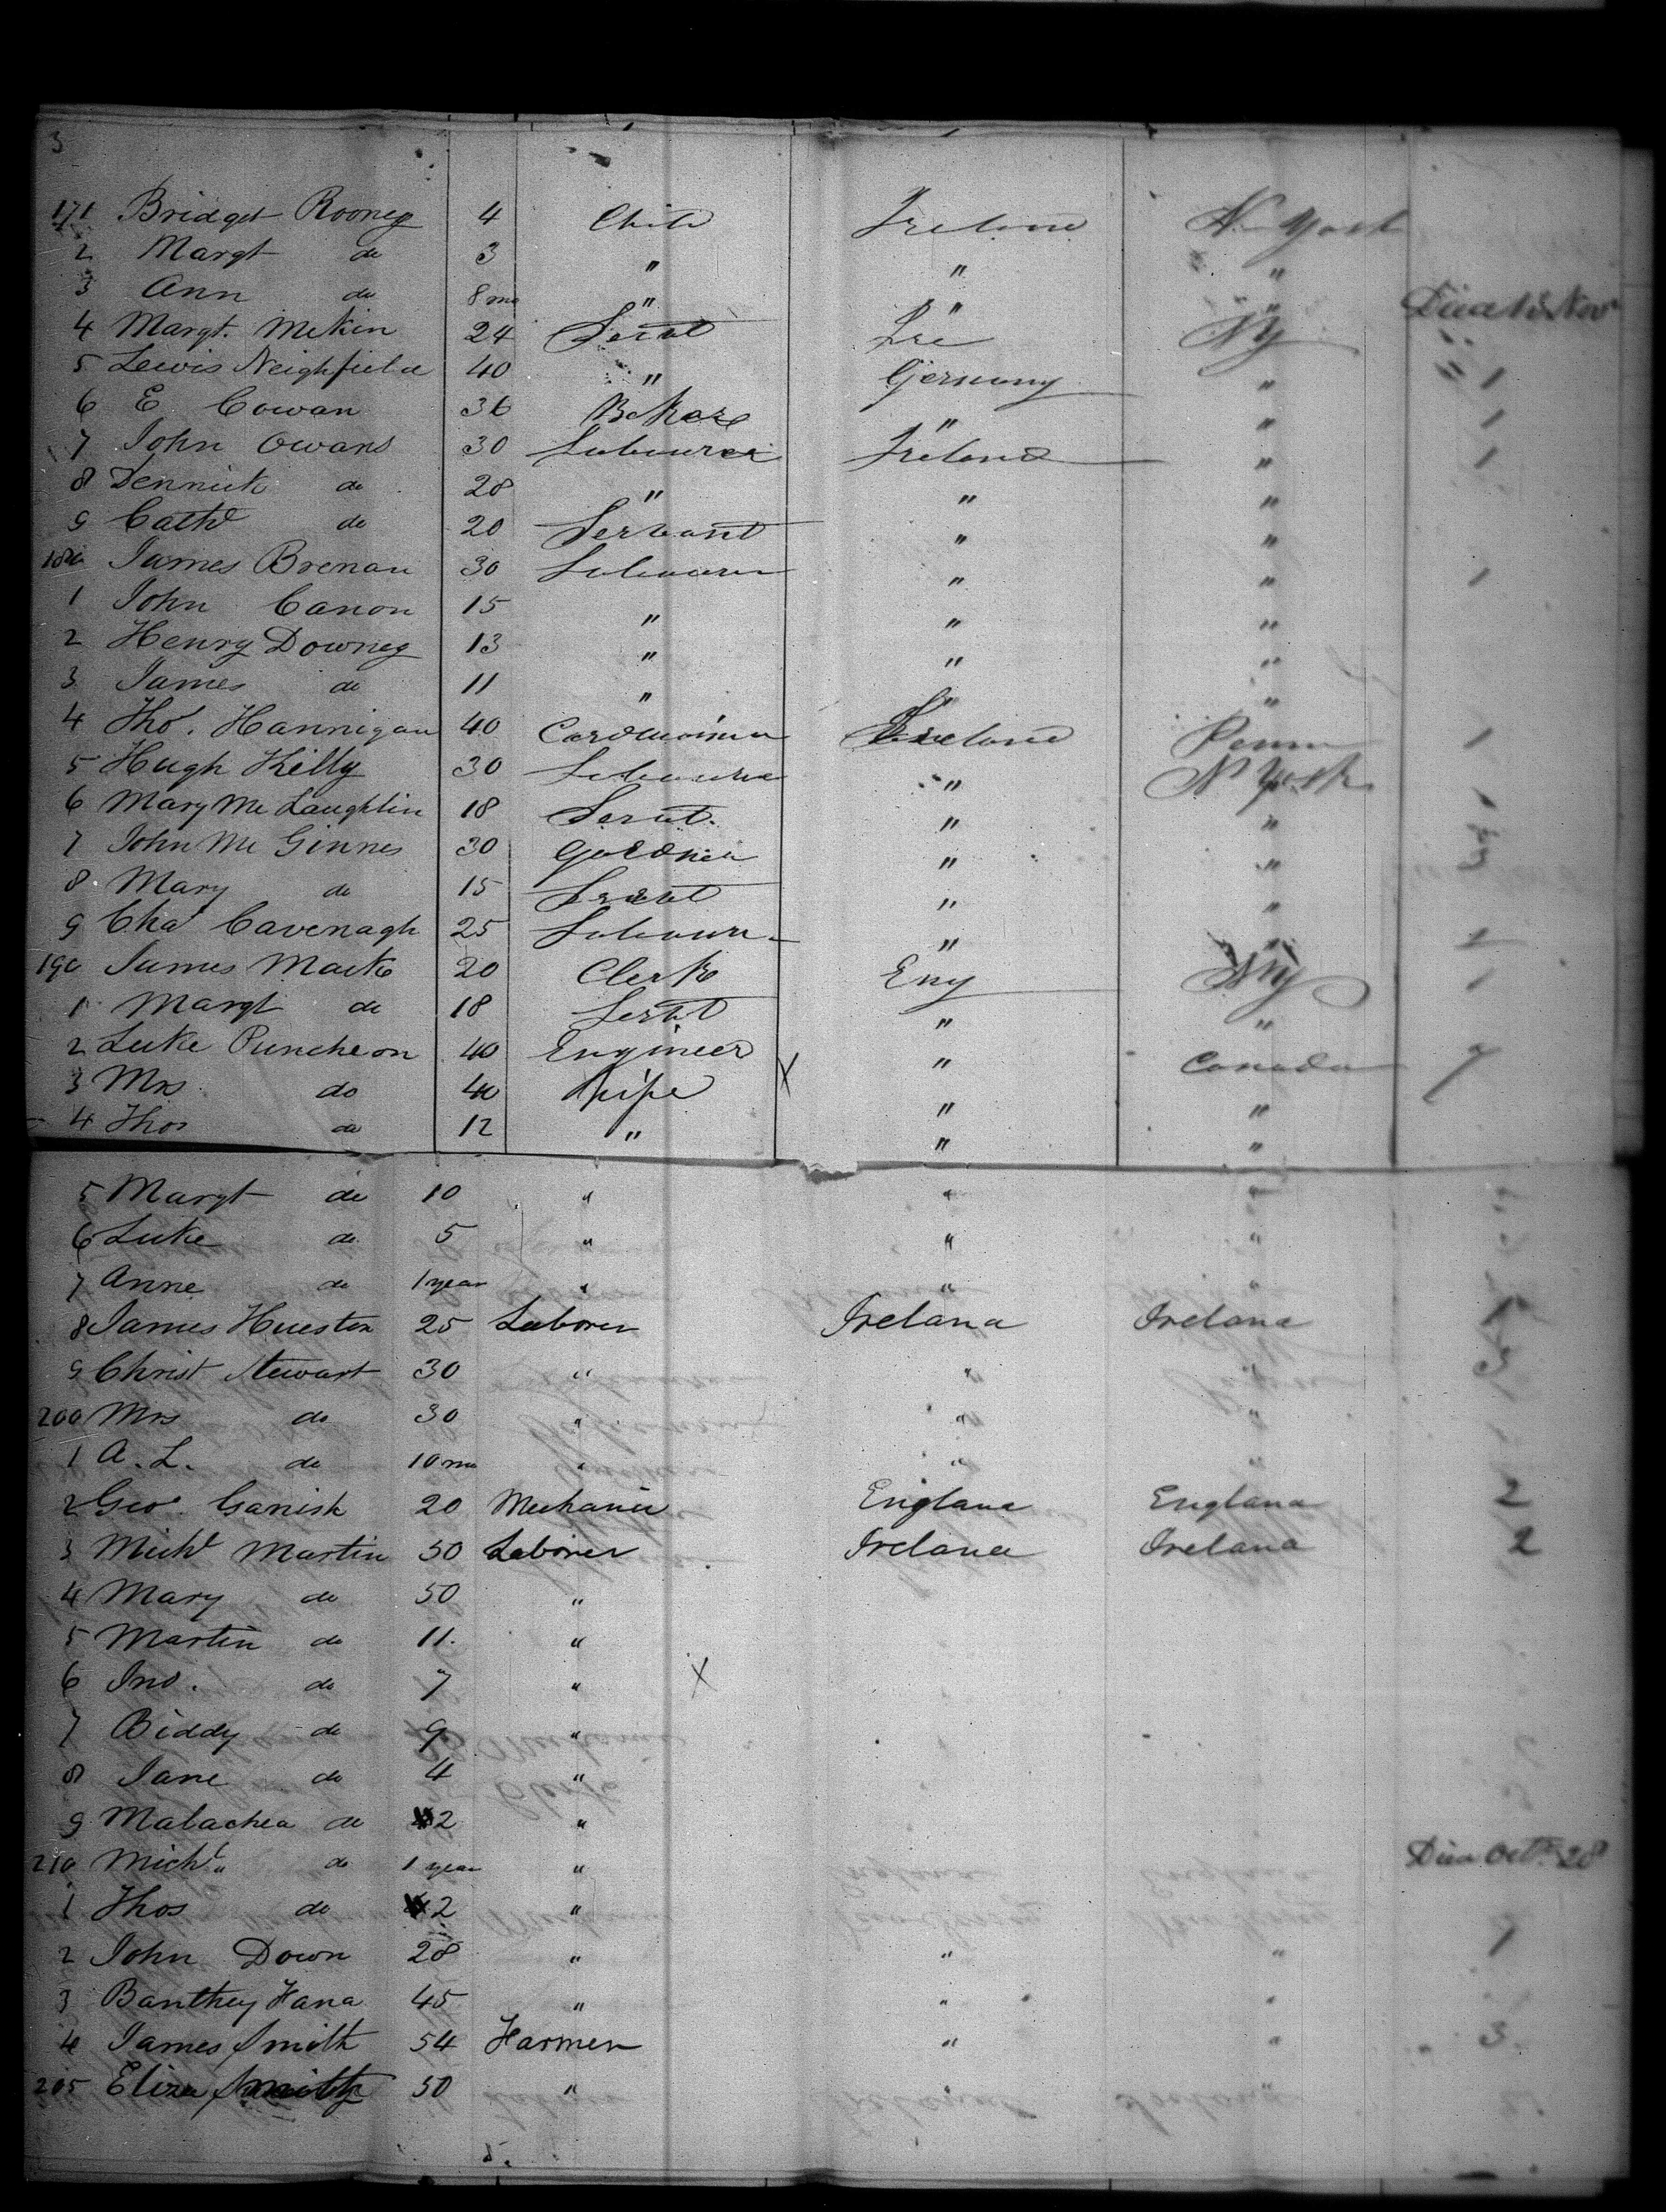 3
171 Bridget Rooney 4 Child Ireland N York
2 Margt do 3 " " "
3 Ann do 8 mo " " " Died Nov
4 Margt. Mekin 24 Servt Ire NY
5 Lewis Neighfield 40 " Germany " 1
6 E Cowan 36 Baker " " 1
7 John Owans 30 Labourer Ireland " 1
8 Dennick do 28 " " "
9 Cathe do 20 Servant " "
180 James Brenan 30 Labourer " " 1
1 John Canon 15 " " "
2 Henry Downey 13 " " "
3 James do 11 " " "
4 Tho. Hannigan 40 Cordwainer Ireland Penn 1
5 Hugh Killy 30 Labourer " N York
6 Mary Mc Laughlin 18 Servt. " " 1
7 John Mc Ginnes 30 Gardner " "
8 Mary do 15 Servt " "
9 Chas Cavenagh 25 Labourer " " 1
190 James Mack 20 Clerk Eng NY 1
1 Margt do 18 Servt " "
2 Luke Puncheon 40 Engineer " Canada 7
3 Mrs do 40 Wife X " "
4 Thos do 12 " " "
5 Margt do 10 " " "
6 Luke do 5 " " "
7 Anne do 1 year " " "
8 James Hueston 25 Laborer Ireland Ireland 1
9 Christ Stewart 30 " " " 3
200 Mrs do 30 " " "
1 A. L. do 10 mo " " "
2 Geo. Ganish 20 Mechanic England England 2
3 Michl Martin 50 Laborer Ireland Ireland 2
4 Mary do 50 "
5 Martin do 11. "
6 Jno. do 7 " X
7 Biddy do 9 "
8 Jane do 4 "
9 Malachea do 2 "
210 Michl " do 1 year " Died Oct. 28
1 Thos do 2 "
2 John Down 28 " " " 1
3 Banthey Hana 45 " " "
4 James Smith 54 Farmer " " 3
215 Eliza Smith 50 " " "
5.